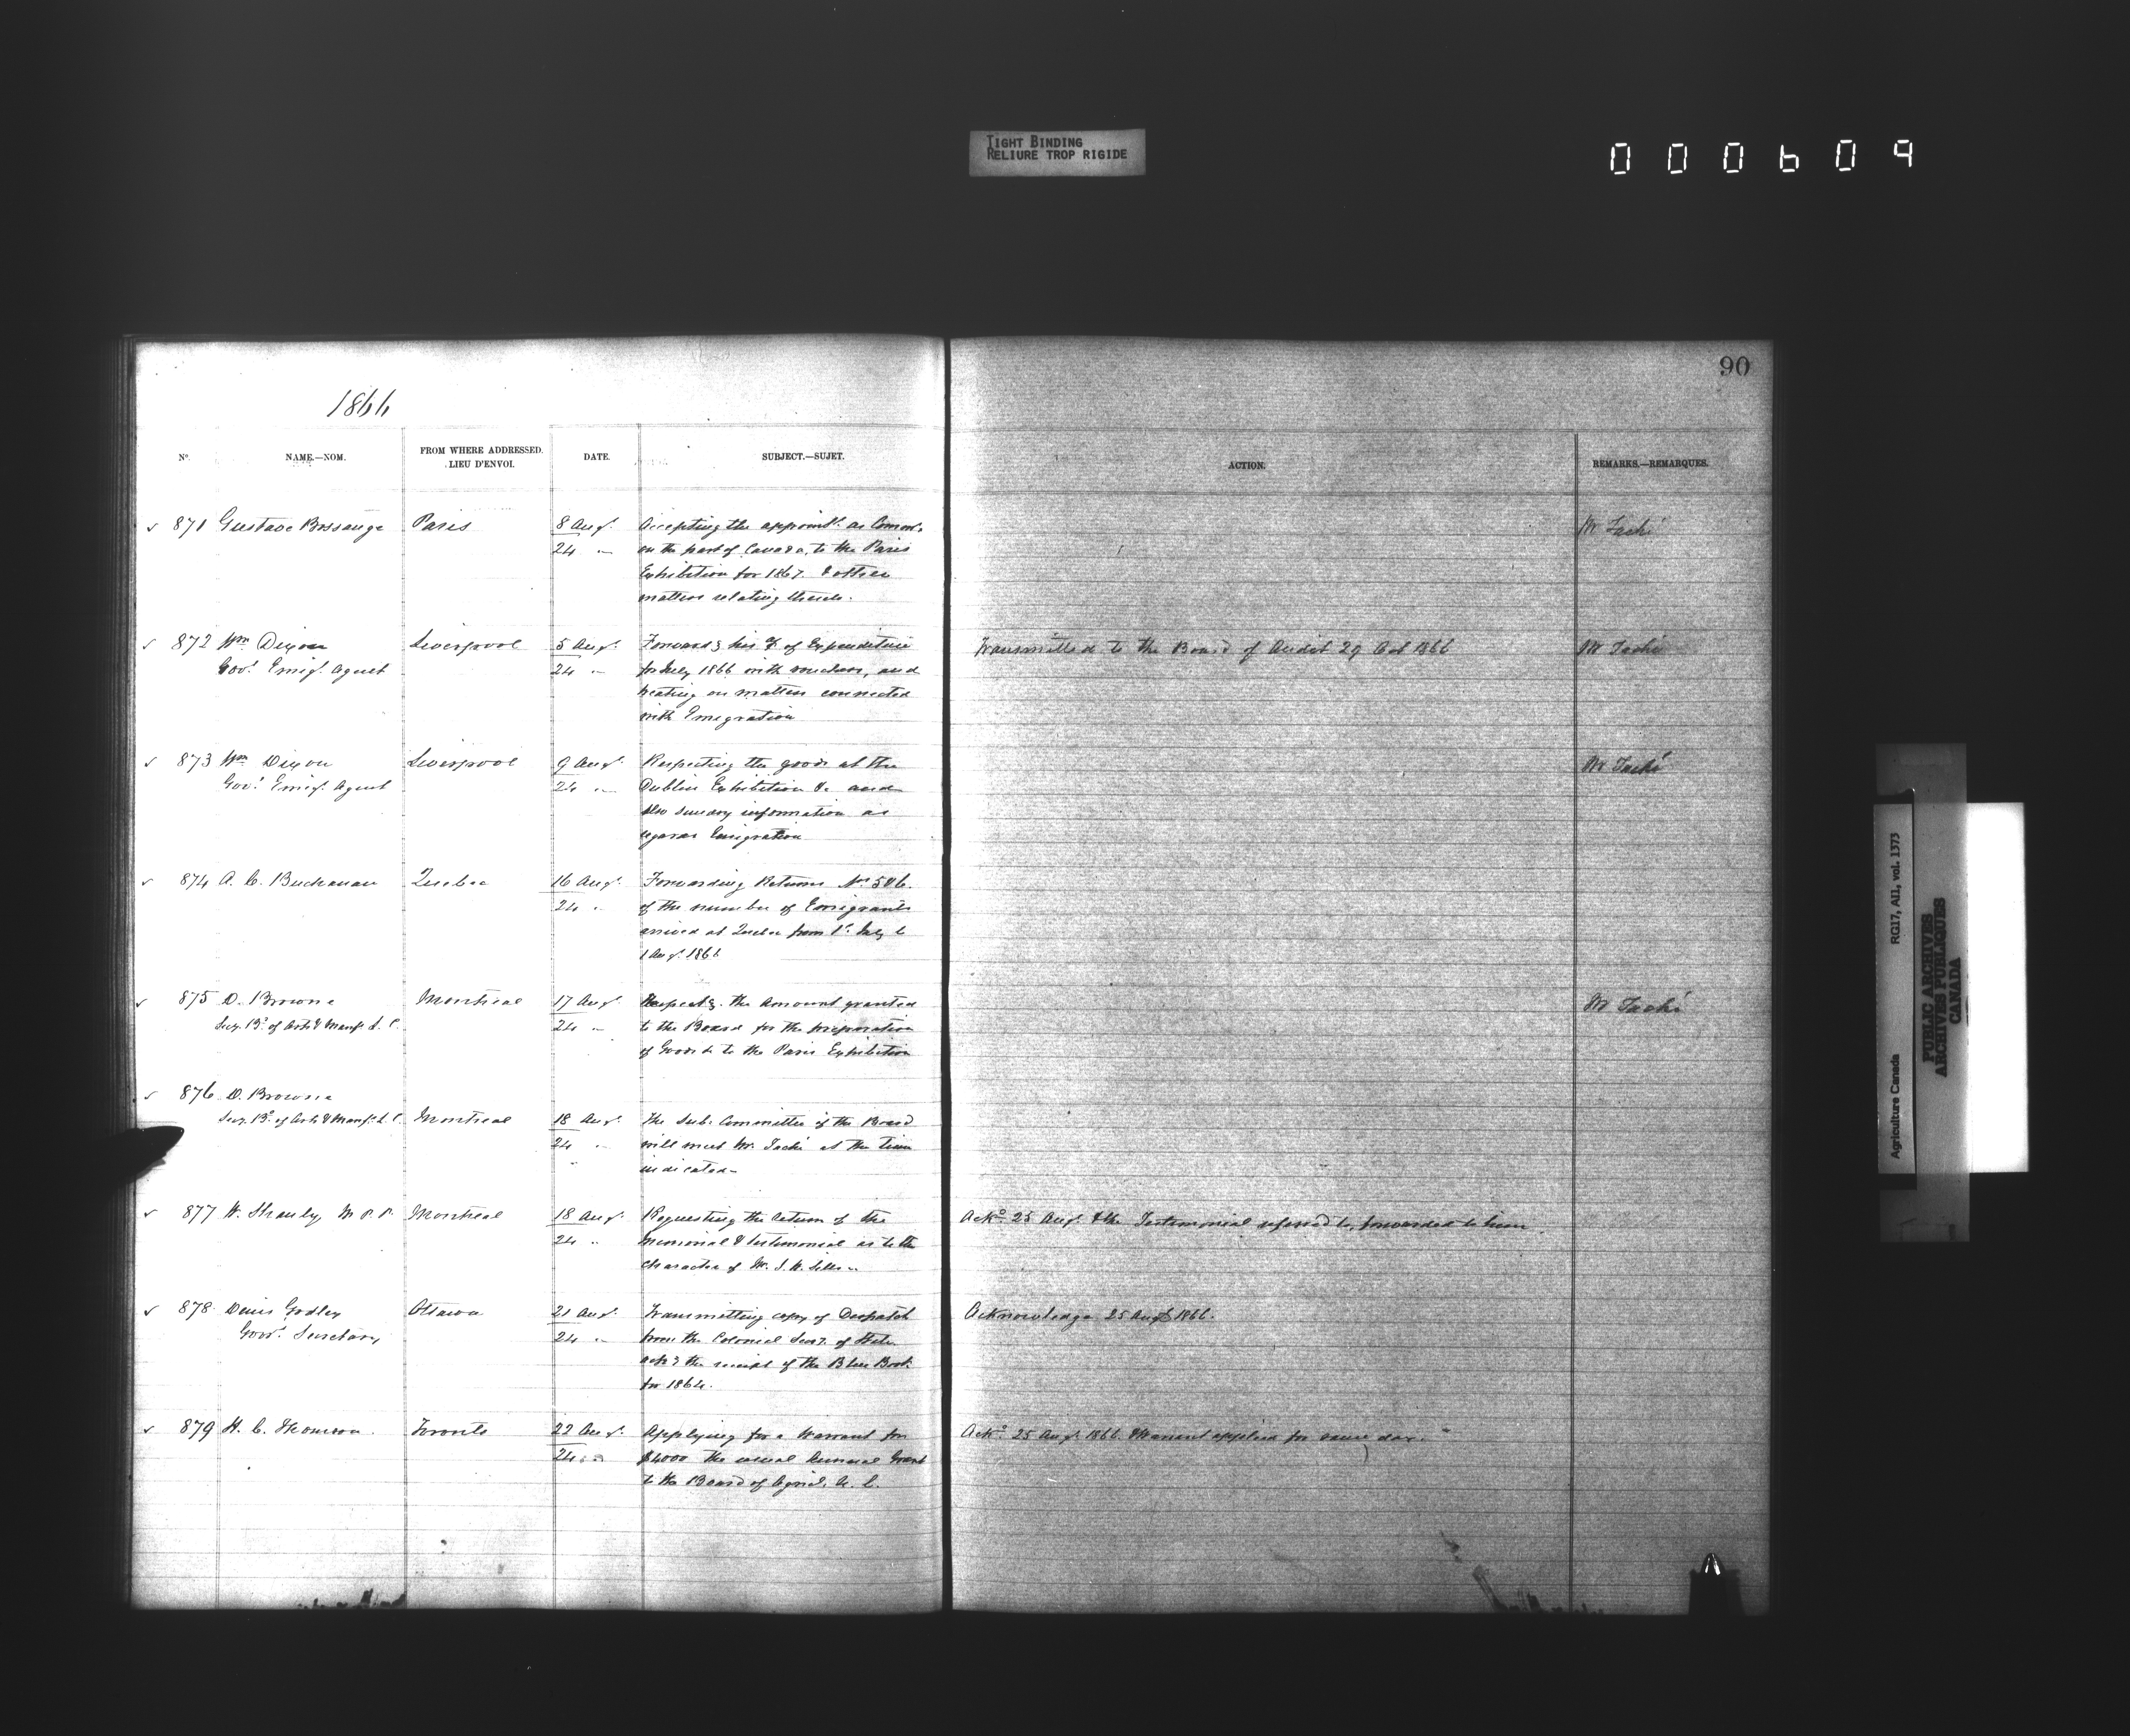 TIGHT BINDING
RELIURE TROP RIGIDE
000609
90
1866
No. NAME.—NOM. FROM WHERE ADDRESSED. LIEU D'ENVOI. DATE. SUBJECT.—SUJET. ACTION. REMARKS.—REMARQUES.
871 Gustave Bossange Paris 8 Augt. Accepting the appointt. as Commr. Mr Taché
24 " on the part of Canada, to the Paris
Exhibition for 1867. & other
matters relating thereto.
872 Wm Dixon Liverpool 5 Augt. Forwardg his of Expenditure Transmitted to the Board of Audit 29 Oct 1866 Mr Taché
Govt. Emigt. Agent 24 " for July 1866 with vouchers, and
treating on matters connected
with Emigration
873 Wm Dixon Liverpool 9 Augt. Respecting the goods at the Mr Taché
Govt. Emigt. Agent 24 " Dublin Exhibition &c and
also sundry information as
regards Emigration
874 A. C. Buchanan Quebec 16 Augt. Forwarding Returns No 5 & 6.
24 " of the number of Emigrants
arrived at Quebec from 1st July to
1 Augt. 1866
875 D. Browne Montreal 17 Augt. Respectg. the amount granted Mr Taché
Secy. Bd. of Arts & Manfs. L. C. 24 " to the Board for the preparation
of Goods &c to the Paris Exhibition
876 D. Browne
Secy. Bd. of Arts & Manfs. L. C. Montreal 18 Augt. The Sub. Committee of the Board
24 " will meet Mr. Taché at the time
indicated
877 W. Shanly M.P.P. Montreal 18 Augt. Requesting the return of the Ackd. 25 Augt. & the Testimonial referred to, forwarded to him
24 " memorial & testimonial as to the
character of Mr.
878 Denis Godley Ottawa 21 Augt. Transmitting copy of Despatch Acknowledge 25 Augt 1866.
Govr. Secretary 24 " from the Colonial Secy. of State
ackg the receipt of the Blue Book
for 1864.
879 H. C. Thomson Toronto 22 Augt. Applying for a Warrant for Ackd. 25 Augt. 1866. Warrant applied for same day.
24 " $4000 the usual Annual Grant
to the Board of Agricl. U. C.
Agriculture Canada RG17, AI1, vol. 1373
PUBLIC ARCHIVES
ARCHIVES PUBLIQUES
CANADA